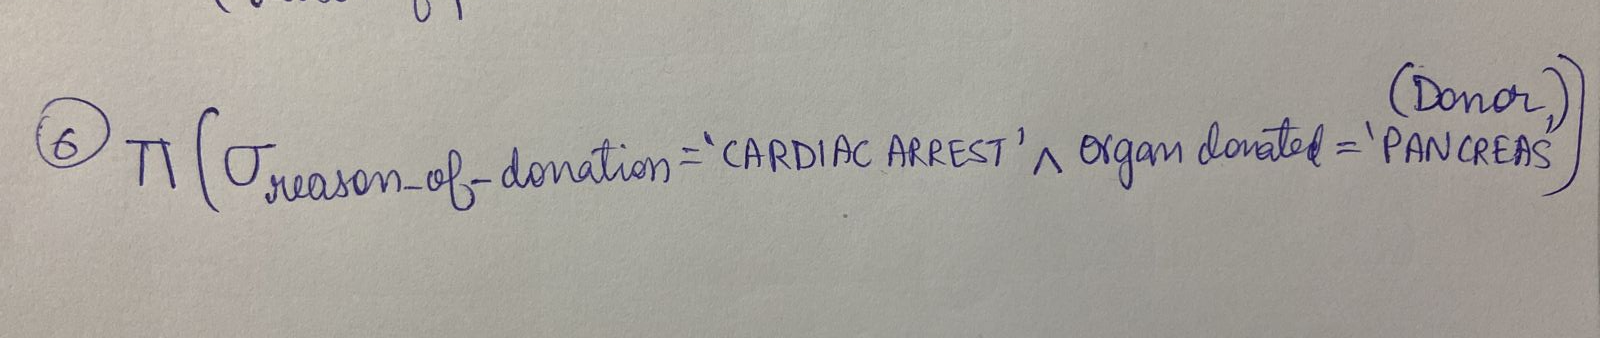 ⑥ π (σ reason_of_donation = 'CARDIAC ARREST' ∧ organ donated = 'PANCREAS' (Donor))